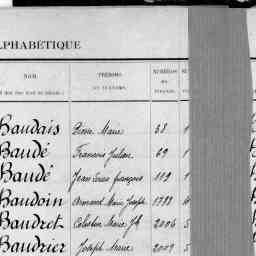 ALPHABÉTIQUE
NOM PRÉNOMS NUMÉROS
ET SURNOMS.
Baudais Pierre Marie 38 1
Baudé François Julien 69 1
Baudé Jean Louis françois 112 1
Baudoin Armand Marie Joseph 1798
Baudret Célestin Marie Jh 2006 5
Baudrier Joseph Marie 2009 5